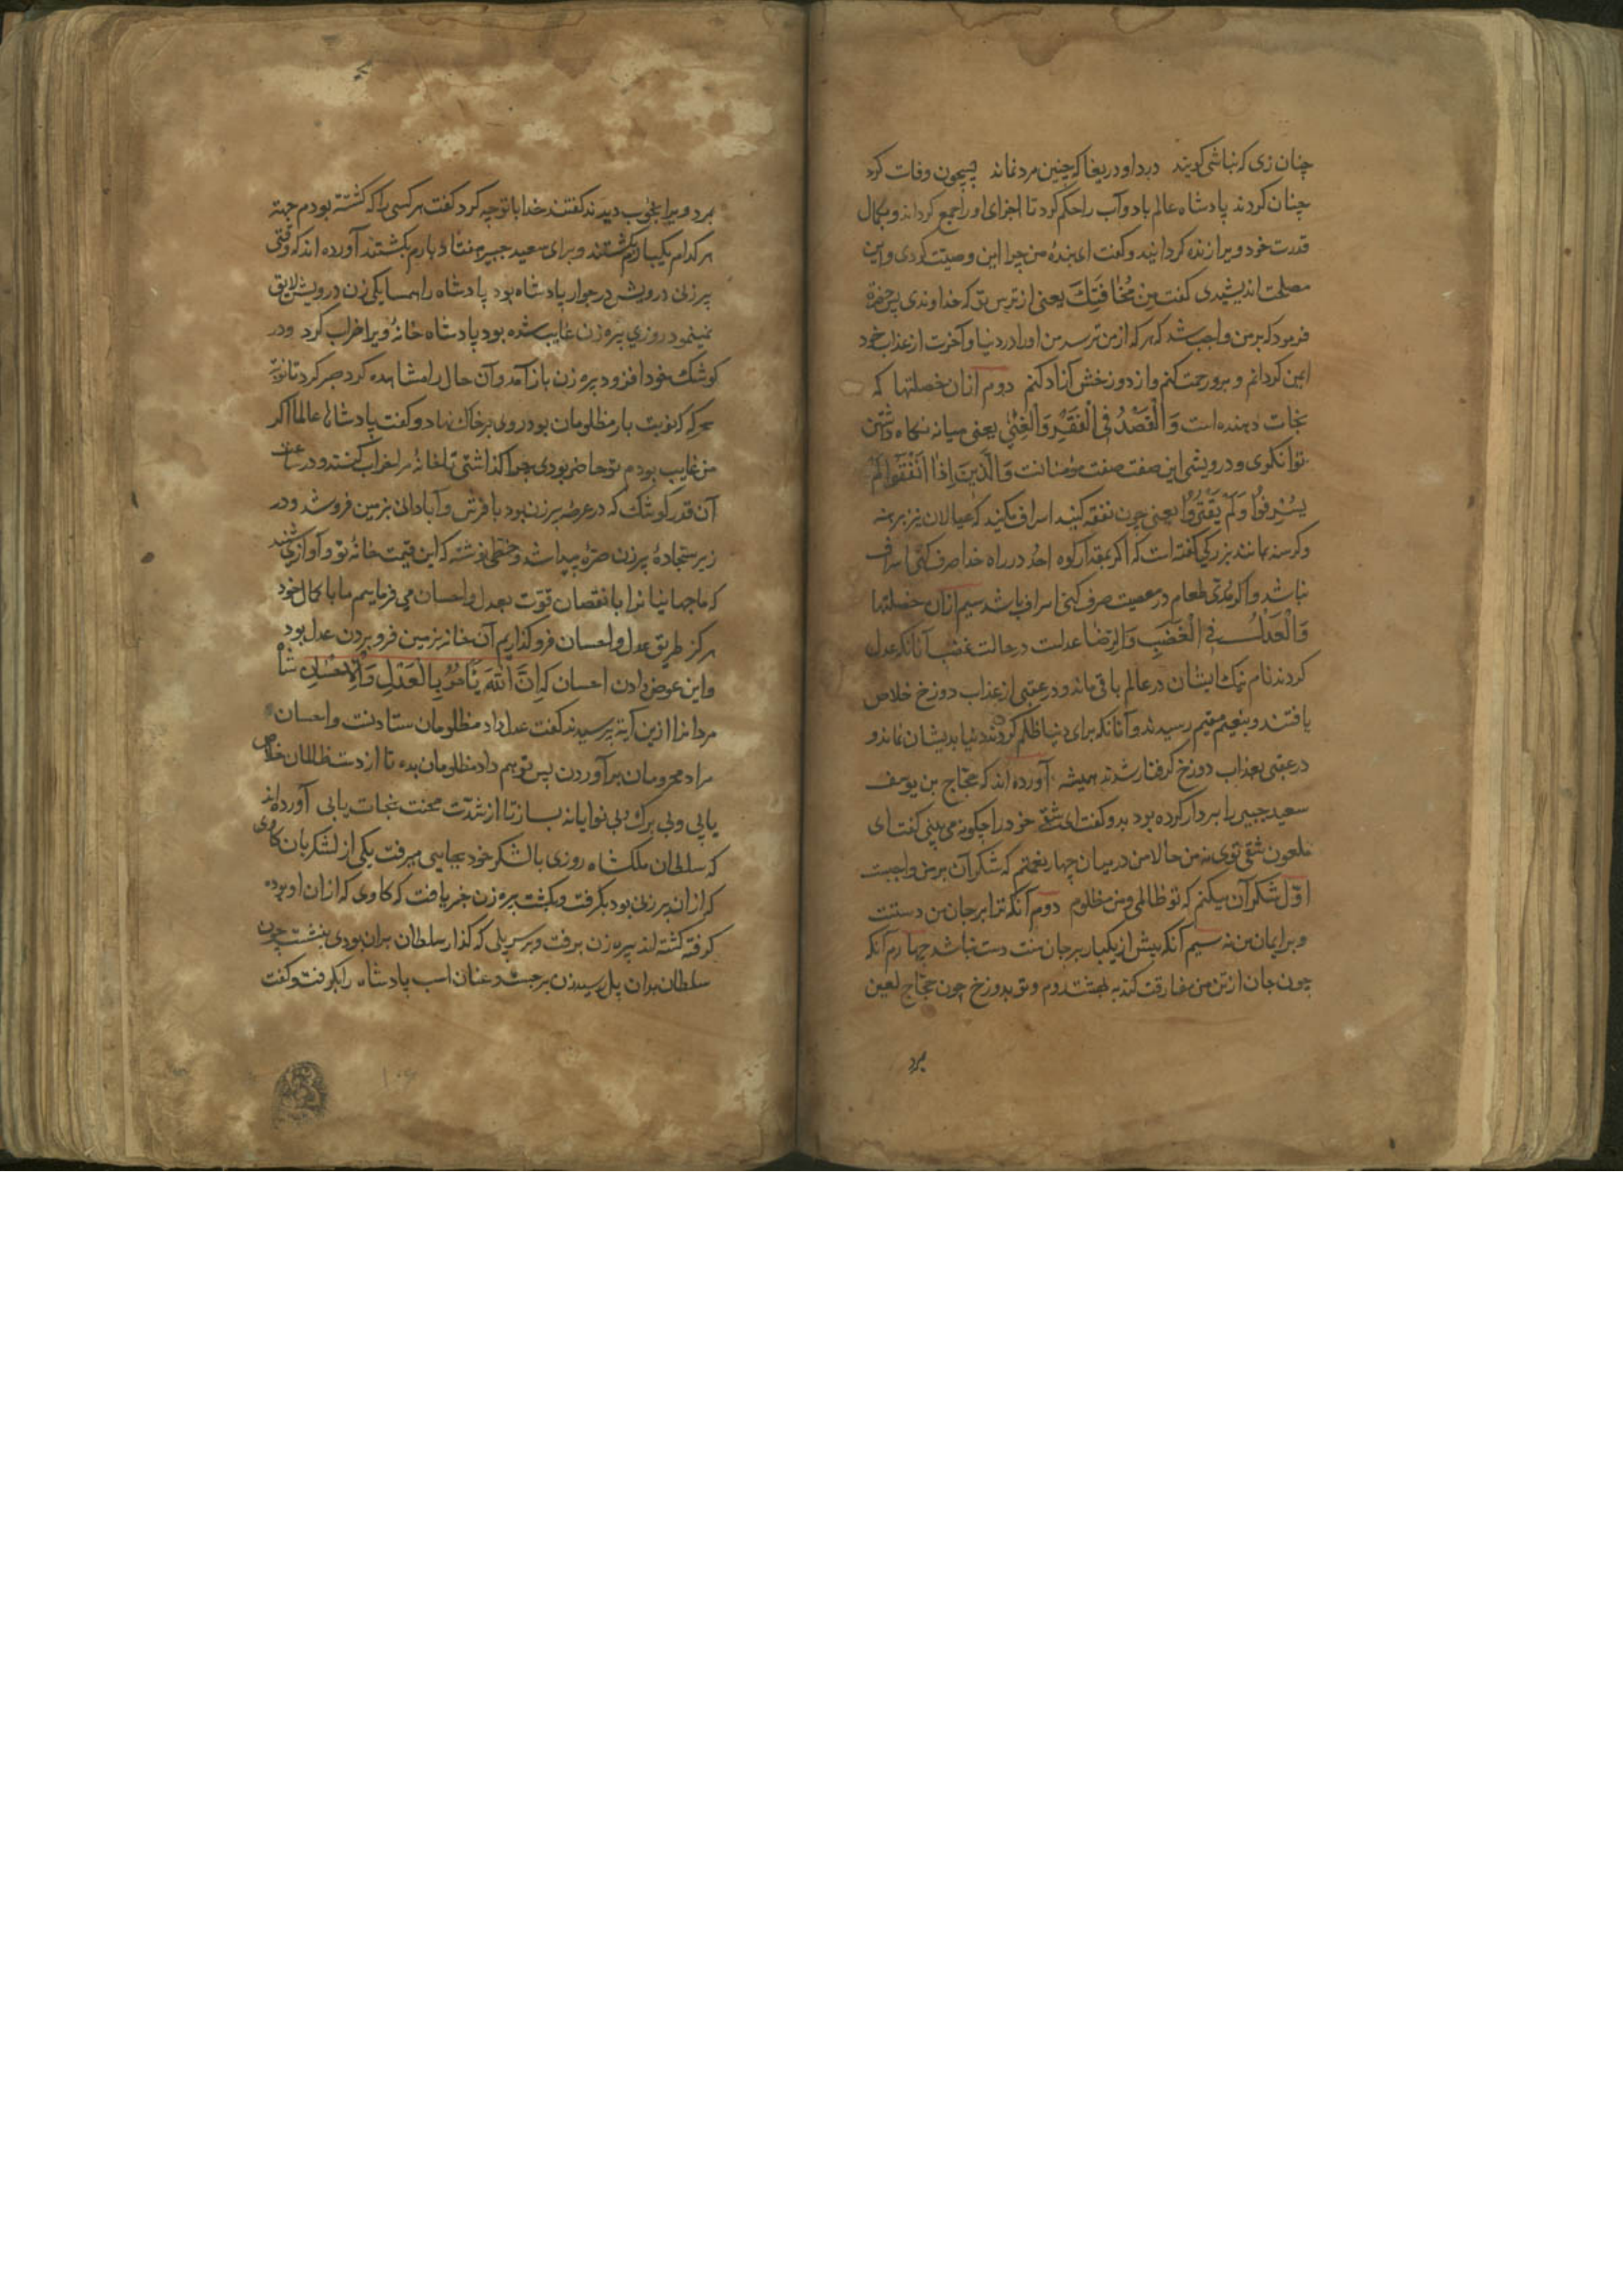 چنان زی که نباشی کویند درد او دریغا که چنین مرد نماند پس چون وفات کرد
چنان کردند پادشاه عالم باد و آب را حکم کرد تا اجزای او را جمع کردانند و بکمال
قدرت خود ویرا زنده کردانید و کفت ای بندهٔ من چرا این وصیت کردی و این
مصلحت اندیشیدی کفت مِن مَخافَتِكَ یعنی از ترس تو که خداوندی پس حضرة
فرمود که بر من واجب شد که هر که از من ترسد من او را در دنیا و آخرت از عذاب خود
ایمن کردانم و برو رحمت کنم و از دوزخش آزاد کنم دوم ازان خصلتها که
نجات دهنده است وَالْقَصْدُ فِی الْفَقْرِ وَالْغِنٰی یعنی میانه نکاه داشتن
توانکری و درویشی این صفت صفت مؤمنانست وَالَّذِینَ اِذٰا اَنْفَقُوا لَمْ
یُسْرِفُوا وَلَمْ یَقْتُرُوا یعنی چون نفقه کنید اسراف مکنید که عیالان نیز برهنه
و کرسنه بمانند بزرکی کفته است که اکر بمقدار کوه احد در راه خدا صرف کنی اسراف
نباشد و اکر مُدّی طعام در معصیت صرف کنی اسراف باشد سیم ازان خصلتها
وَالْعَدْلُ فِی الْغَضَبِ وَالرِّضَا عدلست در حالت غضب آنانکه عدل
کردند نام نیک ایشان در عالم باقی ماند و در عقبی از عذاب دوزخ خلاص
یافتند و بنعیم مقیم رسیدند و آنانکه برای دنیا ظلم کردند دنیا بدیشان نماند و
در عقبی بعذاب دوزخ کرفتار شدند همیشه آورده اند که حجّاج بن یوسف
سعید جبیر را بردار کرده بود بدو کفت ای شقی خود را چکونه می بینی کفت ای
ملعون شقی توی نه من حالا من در میان چهار نعمتم که شکر آن بر من واجبست
اوّل شکر آن میکنم که تو ظالمی و من مظلوم دوم آنکه ترا بر جان من دستست
و بر ایمان من نه سیم آنکه بیش از یکبار بر جان منت دست نباشد چهارم آنکه
چون جان از تن من مفارقت کند به بهشت روم و تو بدوزخ چون حجّاج لعین
بمرد
بمرد ویرا بخوب دیدند کفتند خدا با تو چه کرد کفت هر کسی را که کشته بودم جهة
هر کدام یکبارم بکشتند و برای سعید جبیر هفتاد بارم بکشتند آورده اند که وقتی
پیر زنی درویش در جوار پادشاه بود پادشاه را همسایکی زن درویش لایق
نمینمود روزی پیره زن غایب شده بود پادشاه خانهٔ ویرا خراب کرد و در
کوشک خود افزود پیره زن باز آمد و آن حال را مشاهده کرد صبر کرد تا نوبة
سحر که نوبت بار مظلومان بود روی بر خاک نهاد و کفت پادشاها عالما اکر
من غایب بودم تو حاضر بودی چرا کذاشتی تا خانهٔ مرا خراب کنند و در ساعت
آن قدر کوشک که در عرصهٔ پیر زن بود با فرش و آبادانی بزمین فرو شد و در
زیر سجادهٔ پیرزن صرّه پیدا شد و خطی نوشته که این قیمت خانهٔ تو و آوازی شنید
که ما جهانیانرا با نقصان قوّت بعدل و احسان می فرماییم ما با کمال خود
هرکز طریق عدل و احسان فرو کذاریم آن خانه بزمین فرو بردن عدل بود
و این عوض دادن احسان که اِنَّ اللّٰهَ یَأْمُرُ بِالْعَدْلِ وَالْاِحْسٰانِ شاه
مردانرا ازین آیة پرسیدند کفت عدل داد مظلومان ستادنست و احسان
مراد محرومان بر آوردن پس تو هم داد مظلومان بده تا از دست ظالمان خلاص
یابی و بی برک و بی نوایانه بساز تا از شدّت محنت نجات یابی آورده اند
که سلطان ملکشاه روزی با لشکر خود بجایی میرفت یکی از لشکریان کاوی
که ازان پیرزنی بود بکرفت و بکشت پیره زن خبر یافت که کاوی که ازان او بوده
کرفته کشته اند پیره زن برفت و بر سر پلی که کذار سلطان بران بودی بنشست چون
سلطان بدان پل رسید زن برجست و عنان اسب پادشاه را بکرفت و کفت